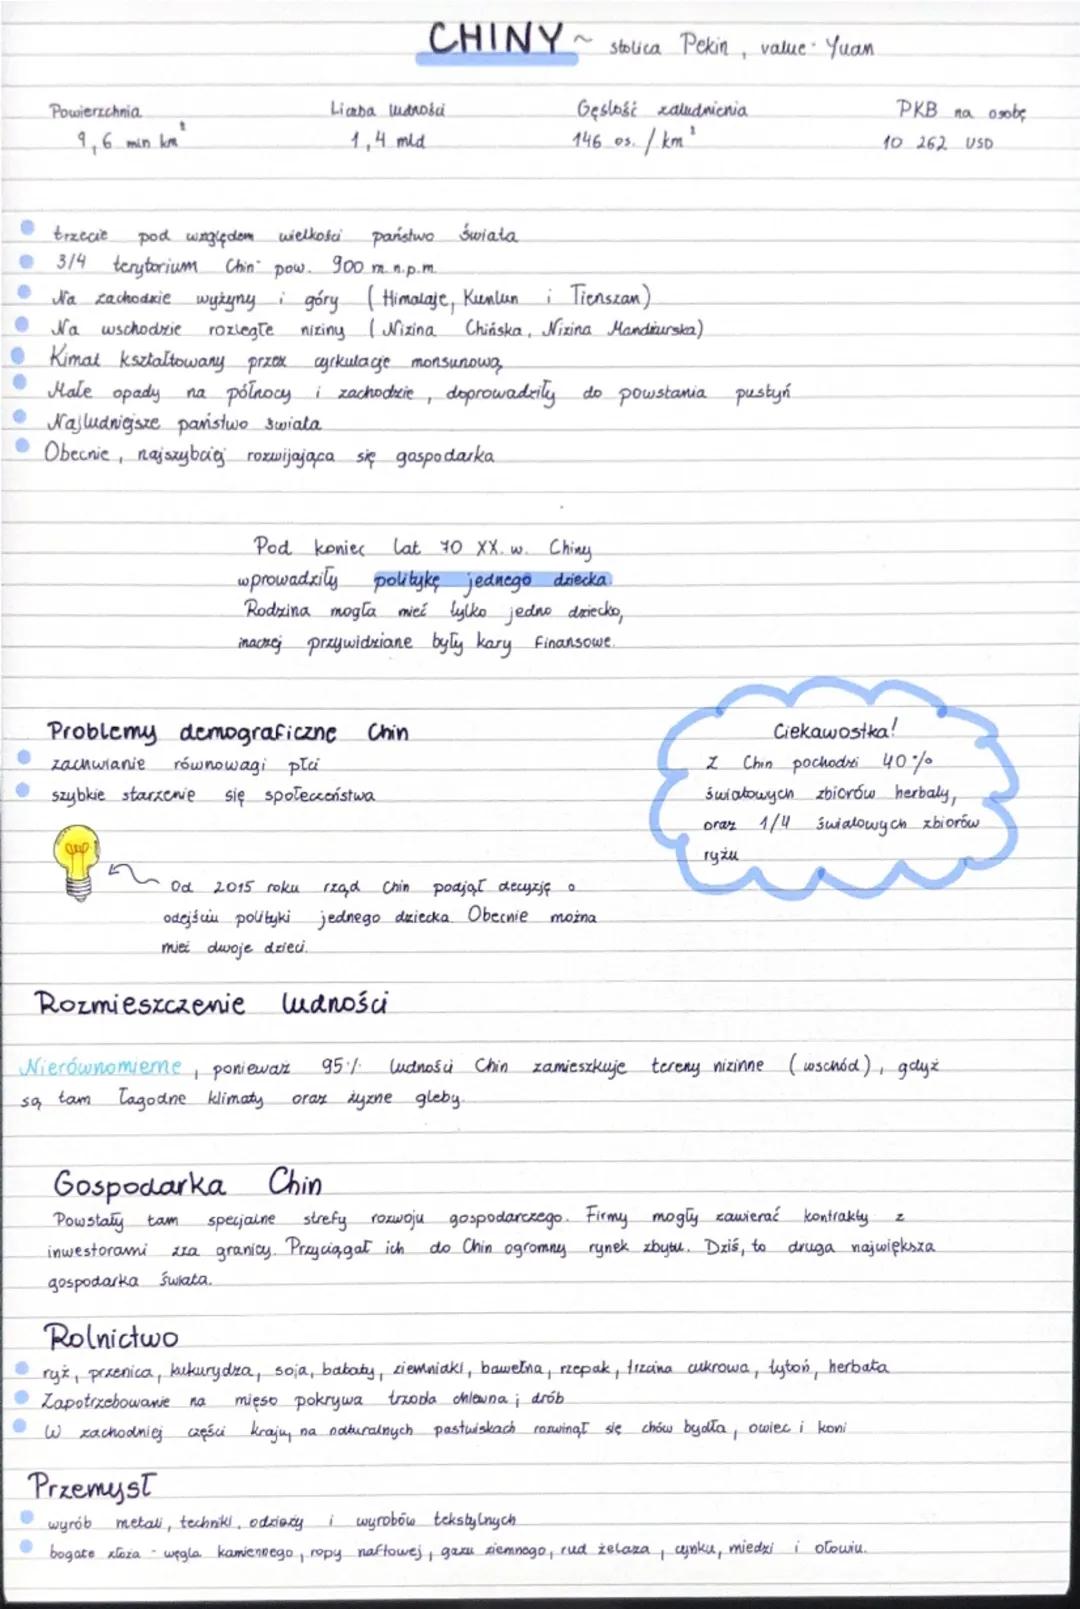 CHINY ~ stolica Pekin, value· Yuan
Powierzchnia Liczba ludności Gęslość zaludnienia PKB na osobę
9,6 mln km² 1,4 mld 146 os. / km² 10 262 USD
trzecie pod względem wielkości państwo świata
3/4 terytorium Chin pow. 900 m. n.p.m.
Na zachodzie wyżyny i góry (Himalaje, Kunlun i Tienszan)
Na wschodzie rozległe niziny (Nizina Chińska, Nizina Mandżurska)
Kimat kształtowany przez cyrkulację monsunową
Małe opady na północy i zachodzie, doprowadziły do powstania pustyń
Najludniejsze państwo świata
Obecnie, najszybciej rozwijająca się gospodarka
Pod koniec lat 70 XX. w. Chiny
wprowadziły politykę jednego dziecka.
Rodzina mogła mieć tylko jedno dziecko,
inaczej przywidziane były kary finansowe.
Problemy demograficzne Chin
zachwianie równowagi płci
szybkie starzenie się społeczeństwa
Ciekawostka!
Z Chin pochodzi 40%
światowych zbiorów herbaty,
oraz 1/4 światowych zbiorów
ryżu
Od 2015 roku rząd Chin podjął decyzję o
odejściu polityki jednego dziecka. Obecnie można
mieć dwoje dzieci.
Rozmieszczenie ludności
Nierównomierne, ponieważ 95% ludności Chin zamieszkuje tereny nizinne (wschód), gdyż
są tam łagodne klimaty oraz żyzne gleby.
Gospodarka Chin
Powstały tam specjalne strefy rozwoju gospodarczego. Firmy mogły zawierać kontrakty z
inwestorami zza granicy. Przyciągał ich do Chin ogromny rynek zbytu. Dziś, to druga największa
gospodarka świata.
Rolnictwo
ryż, przenica, kukurydza, soja, bataty, ziemniaki, bawełna, rzepak, trzcina cukrowa, tytoń, herbata
Zapotrzebowanie na mięso pokrywa trzoda chlewna i drób
W zachodniej części kraju, na naturalnych pastwiskach rozwinął się chów bydła, owiec i koni
Przemysł
wyrób metali, techniki, odzieży i wyrobów tekstylnych
bogate złoża - węgla kamiennego, ropy naftowej, gazu ziemnego, rud żelaza, cynku, miedzi i ołowiu.